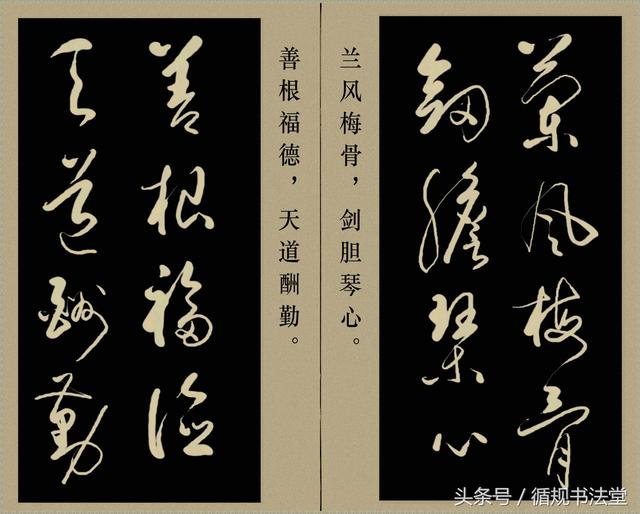 蘭风梅骨
剑膽琴心
兰风梅骨，剑胆琴心。
善根福德，天道酬勤。
善根福德
天道酬勤
头条号／循规书法堂